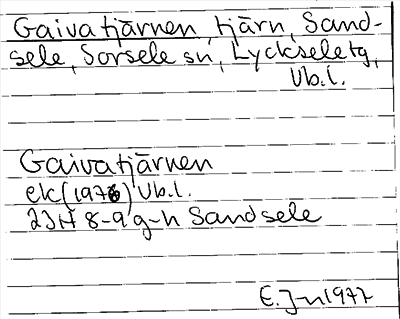 Gaivatjärnen, tjärn, Sand-
sele, Sorsele sn, Lycksele tg,
Vb.l.
Gaivatjärnen
ek (1976) Vb.l.
23H 8-9 g-h Sandsele
E. J-n 1977